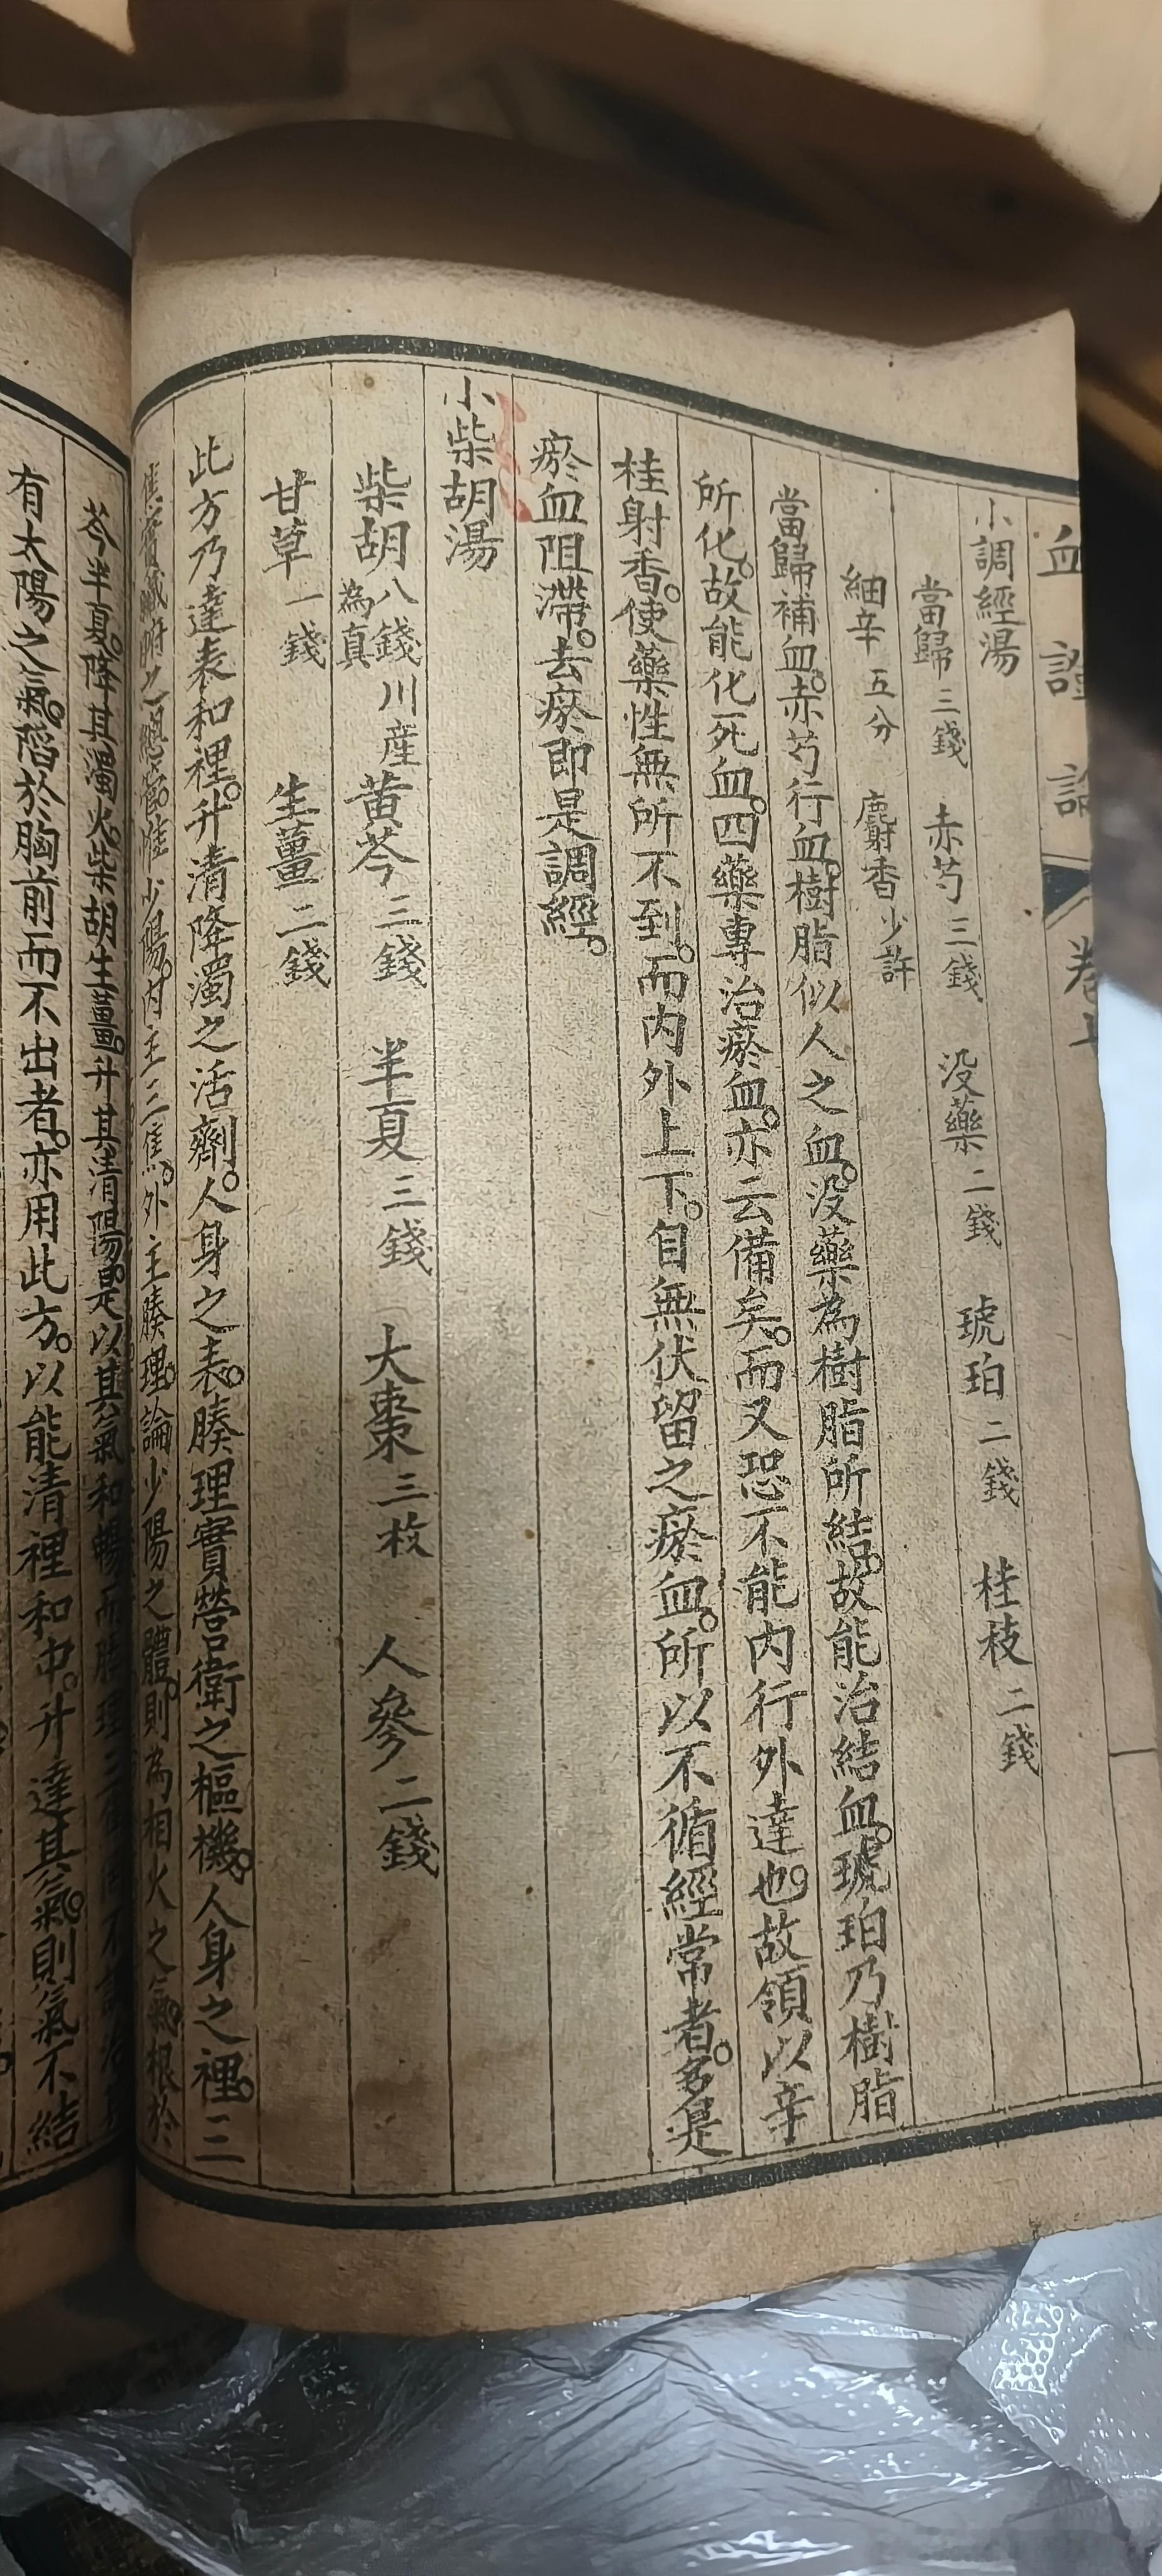 血證論 卷七
小調經湯
當歸三錢 赤芍三錢 没藥二錢 琥珀二錢 桂枝二錢
細辛五分 麝香少許
當歸補血。赤芍行血。樹脂似人之血。没藥為樹脂所結。故能治結血。琥珀乃樹脂
所化。故能化死血。四藥專治瘀血。亦云備矣。而又恐不能內行外達也。故領以辛
桂射香。使藥性無所不到。而內外上下。自無伏留之瘀血。所以不循經常者。多是
瘀血阻滯。去瘀即是調經。
小柴胡湯
柴胡八錢川產為真 黃芩三錢 半夏三錢 大棗三枚 人參二錢
甘草一錢 生薑二錢
此方乃達表和裡。升清降濁之活劑。人身之表。腠理實營衛之樞機。人身之裡。三
惟少陽。內主三焦。外主腠理。論少陽之體。則為相火之氣。根於
芩半夏。降其濁火。柴胡生薑。升其清陽。是以其氣和暢而腠理三
有太陽之氣。陷於胸前而不出者。亦用此方。以能清裡和中。升達其氣。則氣不結